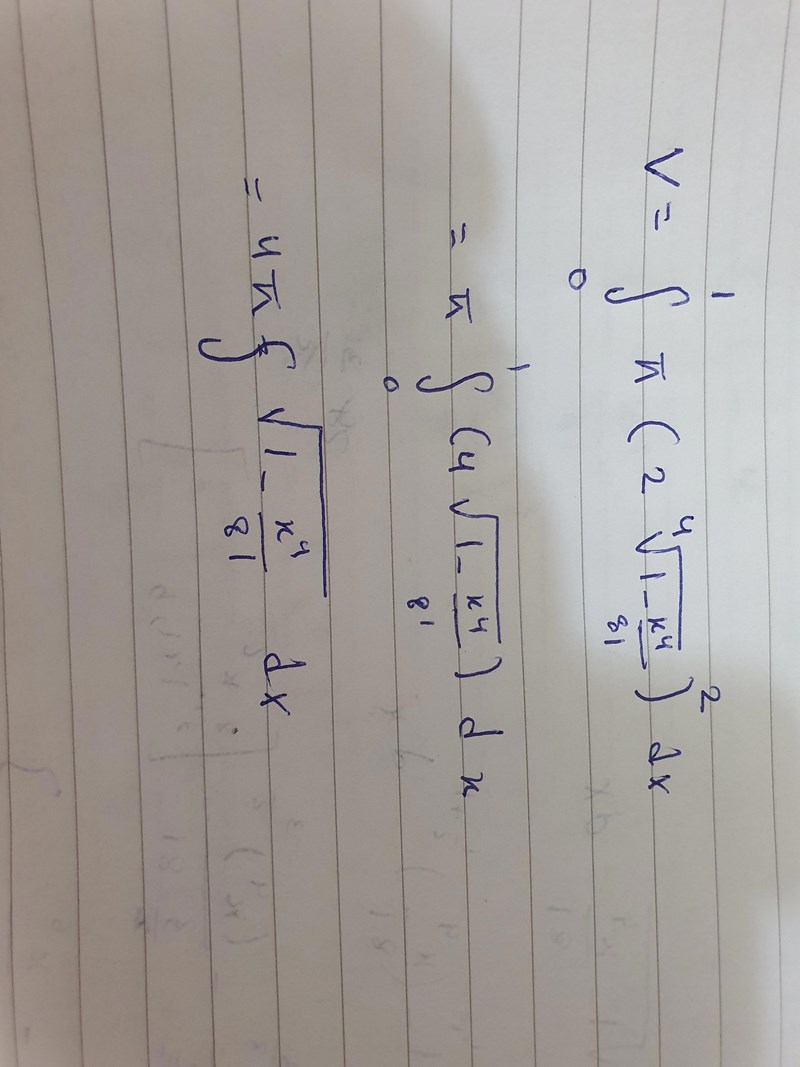 V = ∫₀¹ π ( 2 ∜(1 - x⁴/81) )² dx
= π ∫₀¹ ( 4 √(1 - x⁴/81) ) dx
= 4π ∫ √(1 - x⁴/81) dx